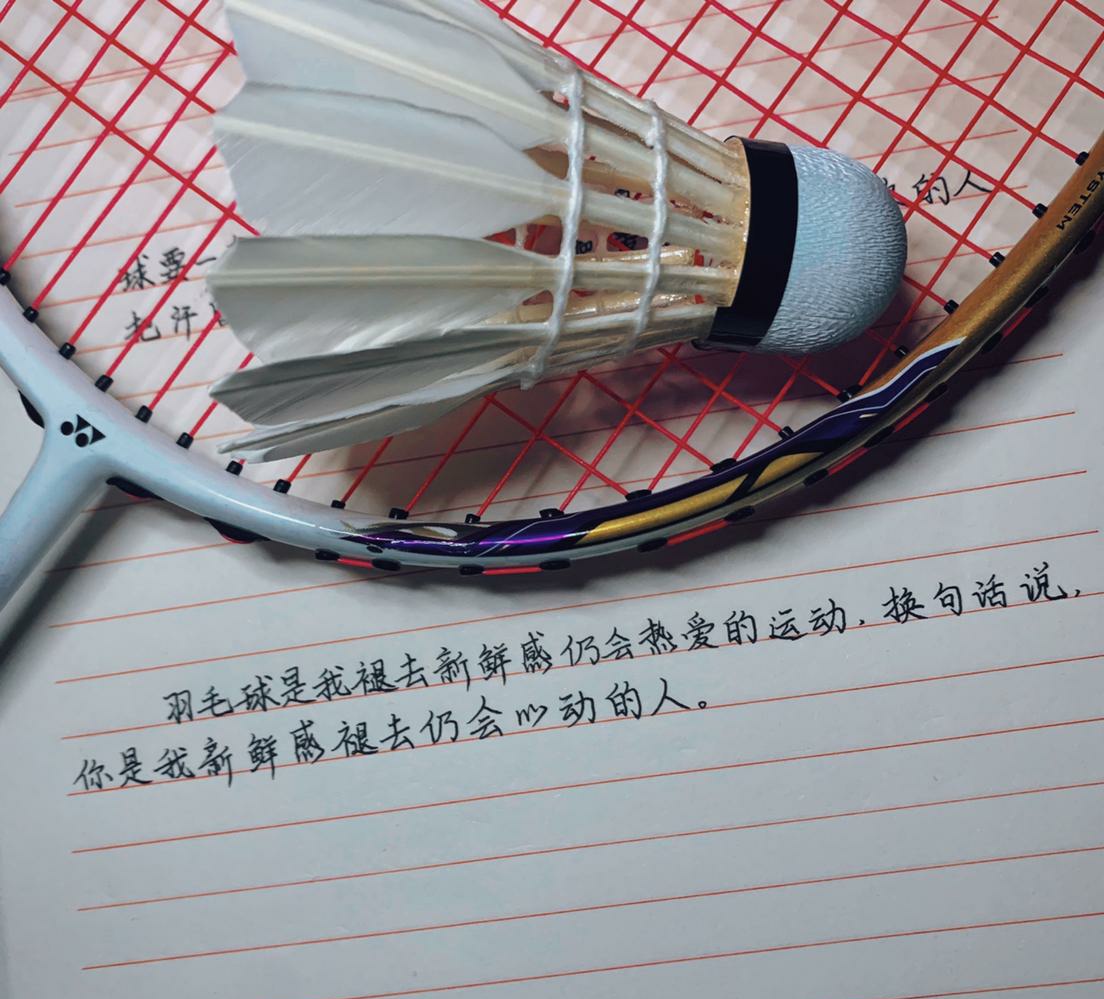 的人
YSTEM
球要一
把汗
羽毛球是我褪去新鲜感仍会热爱的运动.换句话说,
你是我新鲜感褪去仍会心动的人。